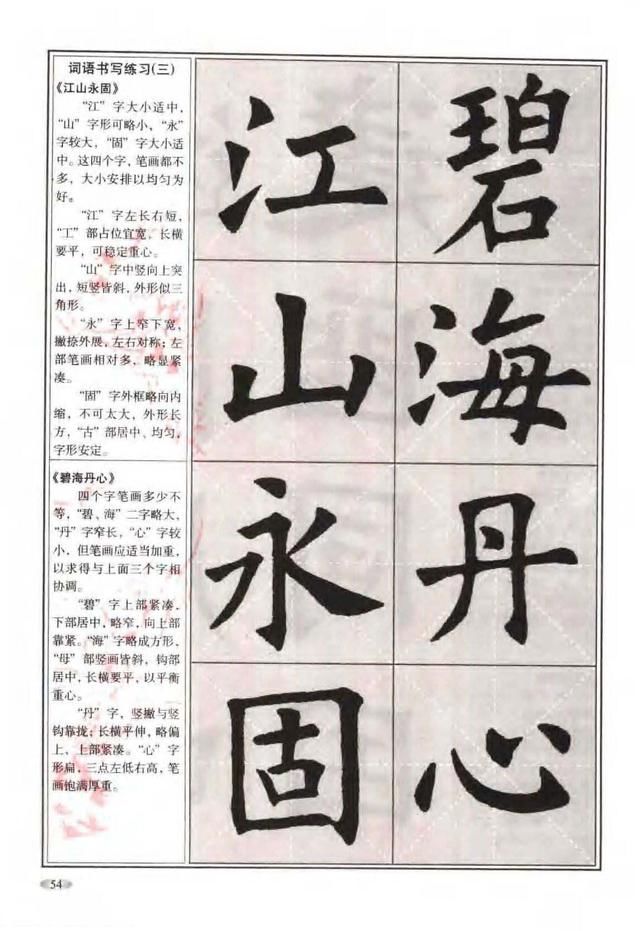 词语书写练习(三)
《江山永固》
“江”字大小适中，
“山”字形可略小，“永”
字较大，“固”字大小适
中。这四个字，笔画都不
多，大小安排以均匀为
好。
“江”字左长右短，
“工”部占位宜宽，长横
要平，可稳定重心。
“山”字中竖向上突
出，短竖皆斜，外形似三
角形。
“永”字上窄下宽，
撇捺外展，左右对称；左
部笔画相对多，略显紧
凑。
“固”字外框略向内
缩，不可太大，外形长
方，“古”部居中、均匀，
字形安定。
《碧海丹心》
四个字笔画多少不
等，“碧、海”二字略大，
“丹”字窄长，“心”字较
小，但笔画应适当加重，
以求得与上面三个字相
协调。
“碧”字上部紧凑，
下部居中，略窄，向上部
靠紧。“海”字略成方形，
“母”部竖画皆斜，钩部
居中，长横要平，以平衡
重心。
“丹”字，竖撇与竖
钩靠拢；长横平伸，略偏
上，上部紧凑。“心”字
形扁，三点左低右高，笔
画饱满厚重。
碧海丹心
江山永固
54